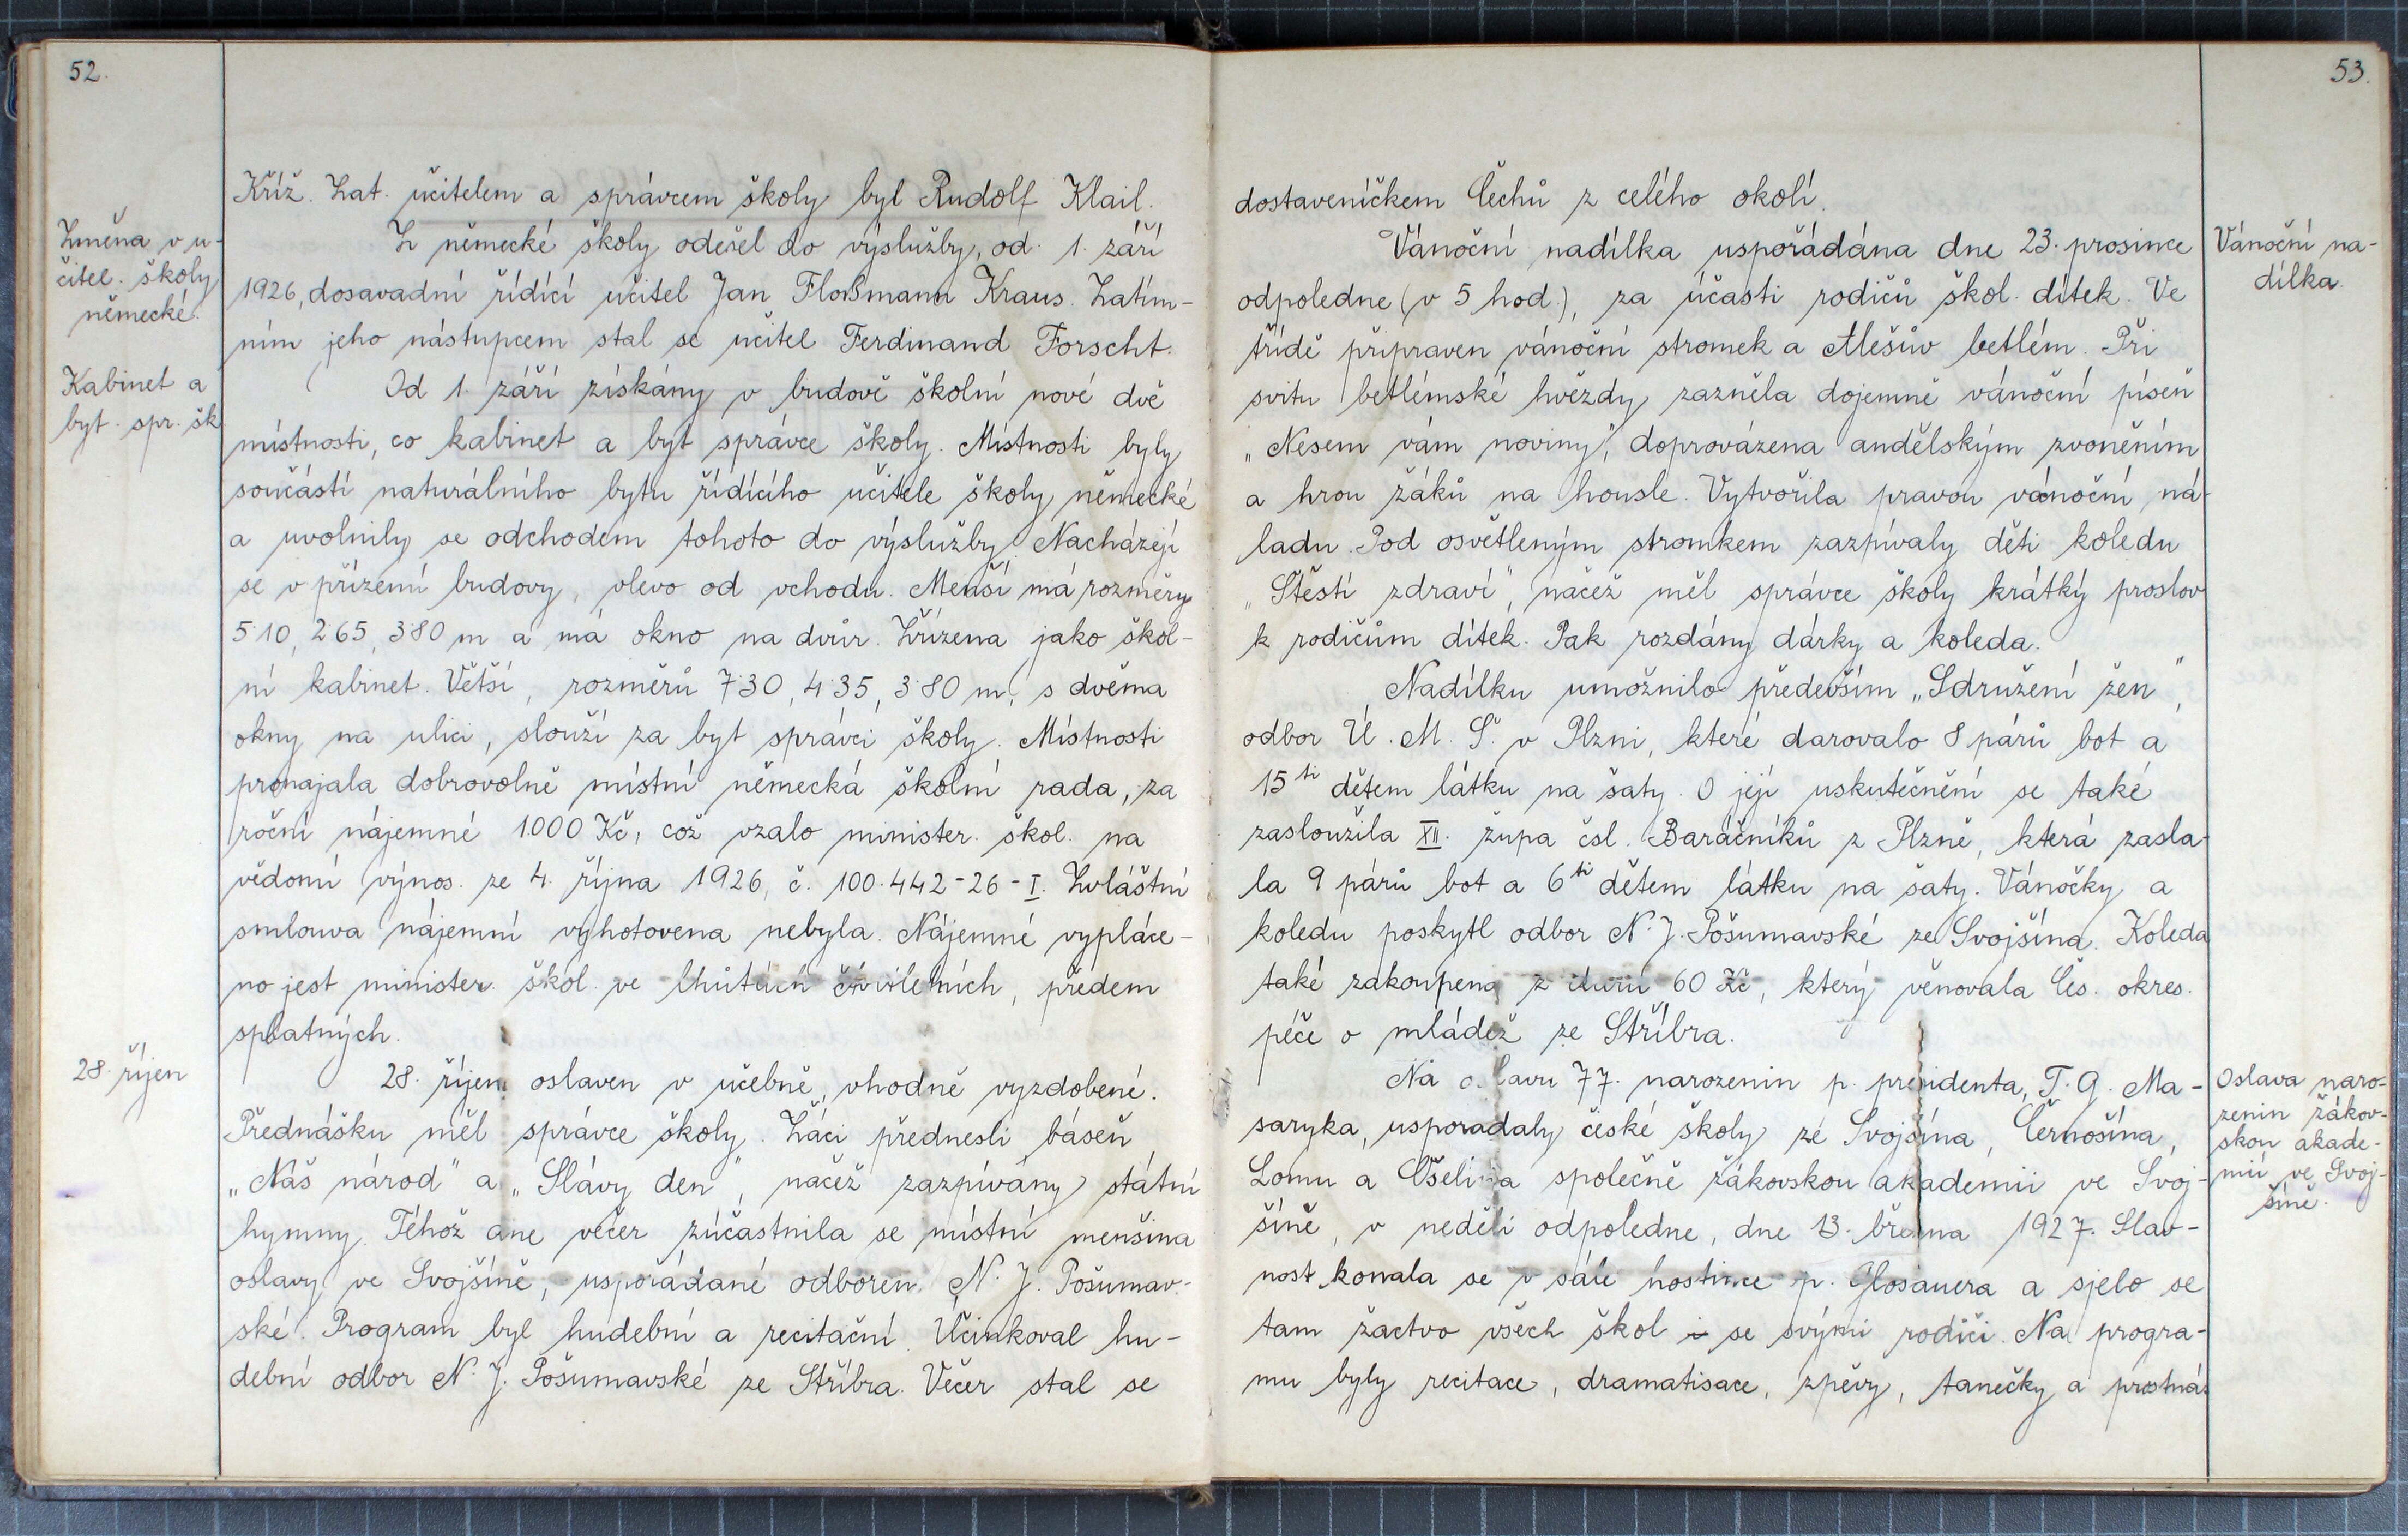 52.
Kříž. Zat. učitelem a správcem školy byl Rudolf Klail.
Změna v u-
čitel. školy
německé.
Z německé školy odešel do výslužby, od 1. září
1926, dosavadní řídící učitel Jan Floßmann Kraus. Zatím-
ním jeho nástupcem stal se učitel Ferdinand Forscht.
Kabinet a
byt. spr. šk.
Od 1. září získány v budově školní nové dvě
místnosti, co kabinet a byt správce školy. Místnosti byly
součástí naturálního bytu řídícího učitele školy německé
a uvolnily se odchodem tohoto do výslužby. Nacházejí
se v přízemí budovy, vlevo od vchodu. Menší má rozměry
5·10, 2·65, 3·80 m a má okno na dvůr. Zřízena jako škol-
ní kabinet. Větší, rozměrů 7·30, 4·35, 3·80 m, s dvěma
okny na ulici, slouží za byt správci školy. Místnosti
pronajala dobrovolně místní německá školní rada, za
roční nájemné 1000 Kč, což vzalo minister. škol. na
vědomí výnos. ze 4. října 1926, č. 100.442-26-I. Zvláštní
smlouva nájemní vyhotovena nebyla. Nájemné vypláce-
no jest minister. škol. ve lhůtách čtvrtletních, předem
splatných.
28. říjen
28. říjen oslaven v učebně, vhodně vyzdobené.
Přednášku měl správce školy. Žáci přednesli báseň
„Náš národ" a „Slávy den", načež zazpívány státní
hymny. Téhož dne večer zúčastnila se místní menšina
oslavy ve Svojšíně, uspořádané odborem N. J. Pošumav-
ské. Program byl hudební a recitační. Účinkoval hu-
dební odbor N. J. Pošumavské ze Stříbra. Večer stal se
53.
dostaveníčkem Čechů z celého okolí.
Vánoční na-
dílka.
Vánoční nadílka uspořádána dne 23. prosince
odpoledne (v 5 hod.), za účasti rodičů škol. dítek. Ve
třídě připraven vánoční stromek a Alešův betlém. Při
svitu betlémské hvězdy zazněla dojemně vánoční píseň
„Nesem vám noviny", doprovázena andělským zvoněním
a hrou žáků na housle. Vytvořila pravou vánoční ná-
ladu. Pod osvětleným stromkem zazpívaly děti koledu
„Štěstí zdraví", načež měl správce školy krátký proslov
k rodičům dítek. Pak rozdány dárky a koleda.
Nadílku umožnilo především „Sdružení žen",
odbor Ú. M. Š. v Plzni, které darovalo 8 párů bot a
15ti dětem látku na šaty. O její uskutečnění se také
zasloužila XII. župa čsl. Baráčníků z Plzně, která zasla-
la 9 párů bot a 6ti dětem látku na šaty. Vánočky a
koledu poskytl odbor N. J. Pošumavské ze Svojšína. Koleda
také zakoupena z daru 60 Kč, který věnovala Čes. okres.
péče o mládež ze Stříbra.
Oslava naro-
zenin žákov-
skou akade-
mií ve Svoj-
šíně.
Na oslavu 77. narozenin p. presidenta, T. G. Ma-
saryka, uspořádaly české školy ze Svojšína, Černošína,
Lomu a Ošelína společně žákovskou akademii ve Svoj-
šíně, v neděli odpoledne, dne 13. března 1927. Slav-
nost konala se v sále hostince p. Glosauera a sjelo se
tam žactvo všech škol i se svými rodiči. Na progra-
mu byly recitace, dramatisace, zpěvy, tanečky a prostná.